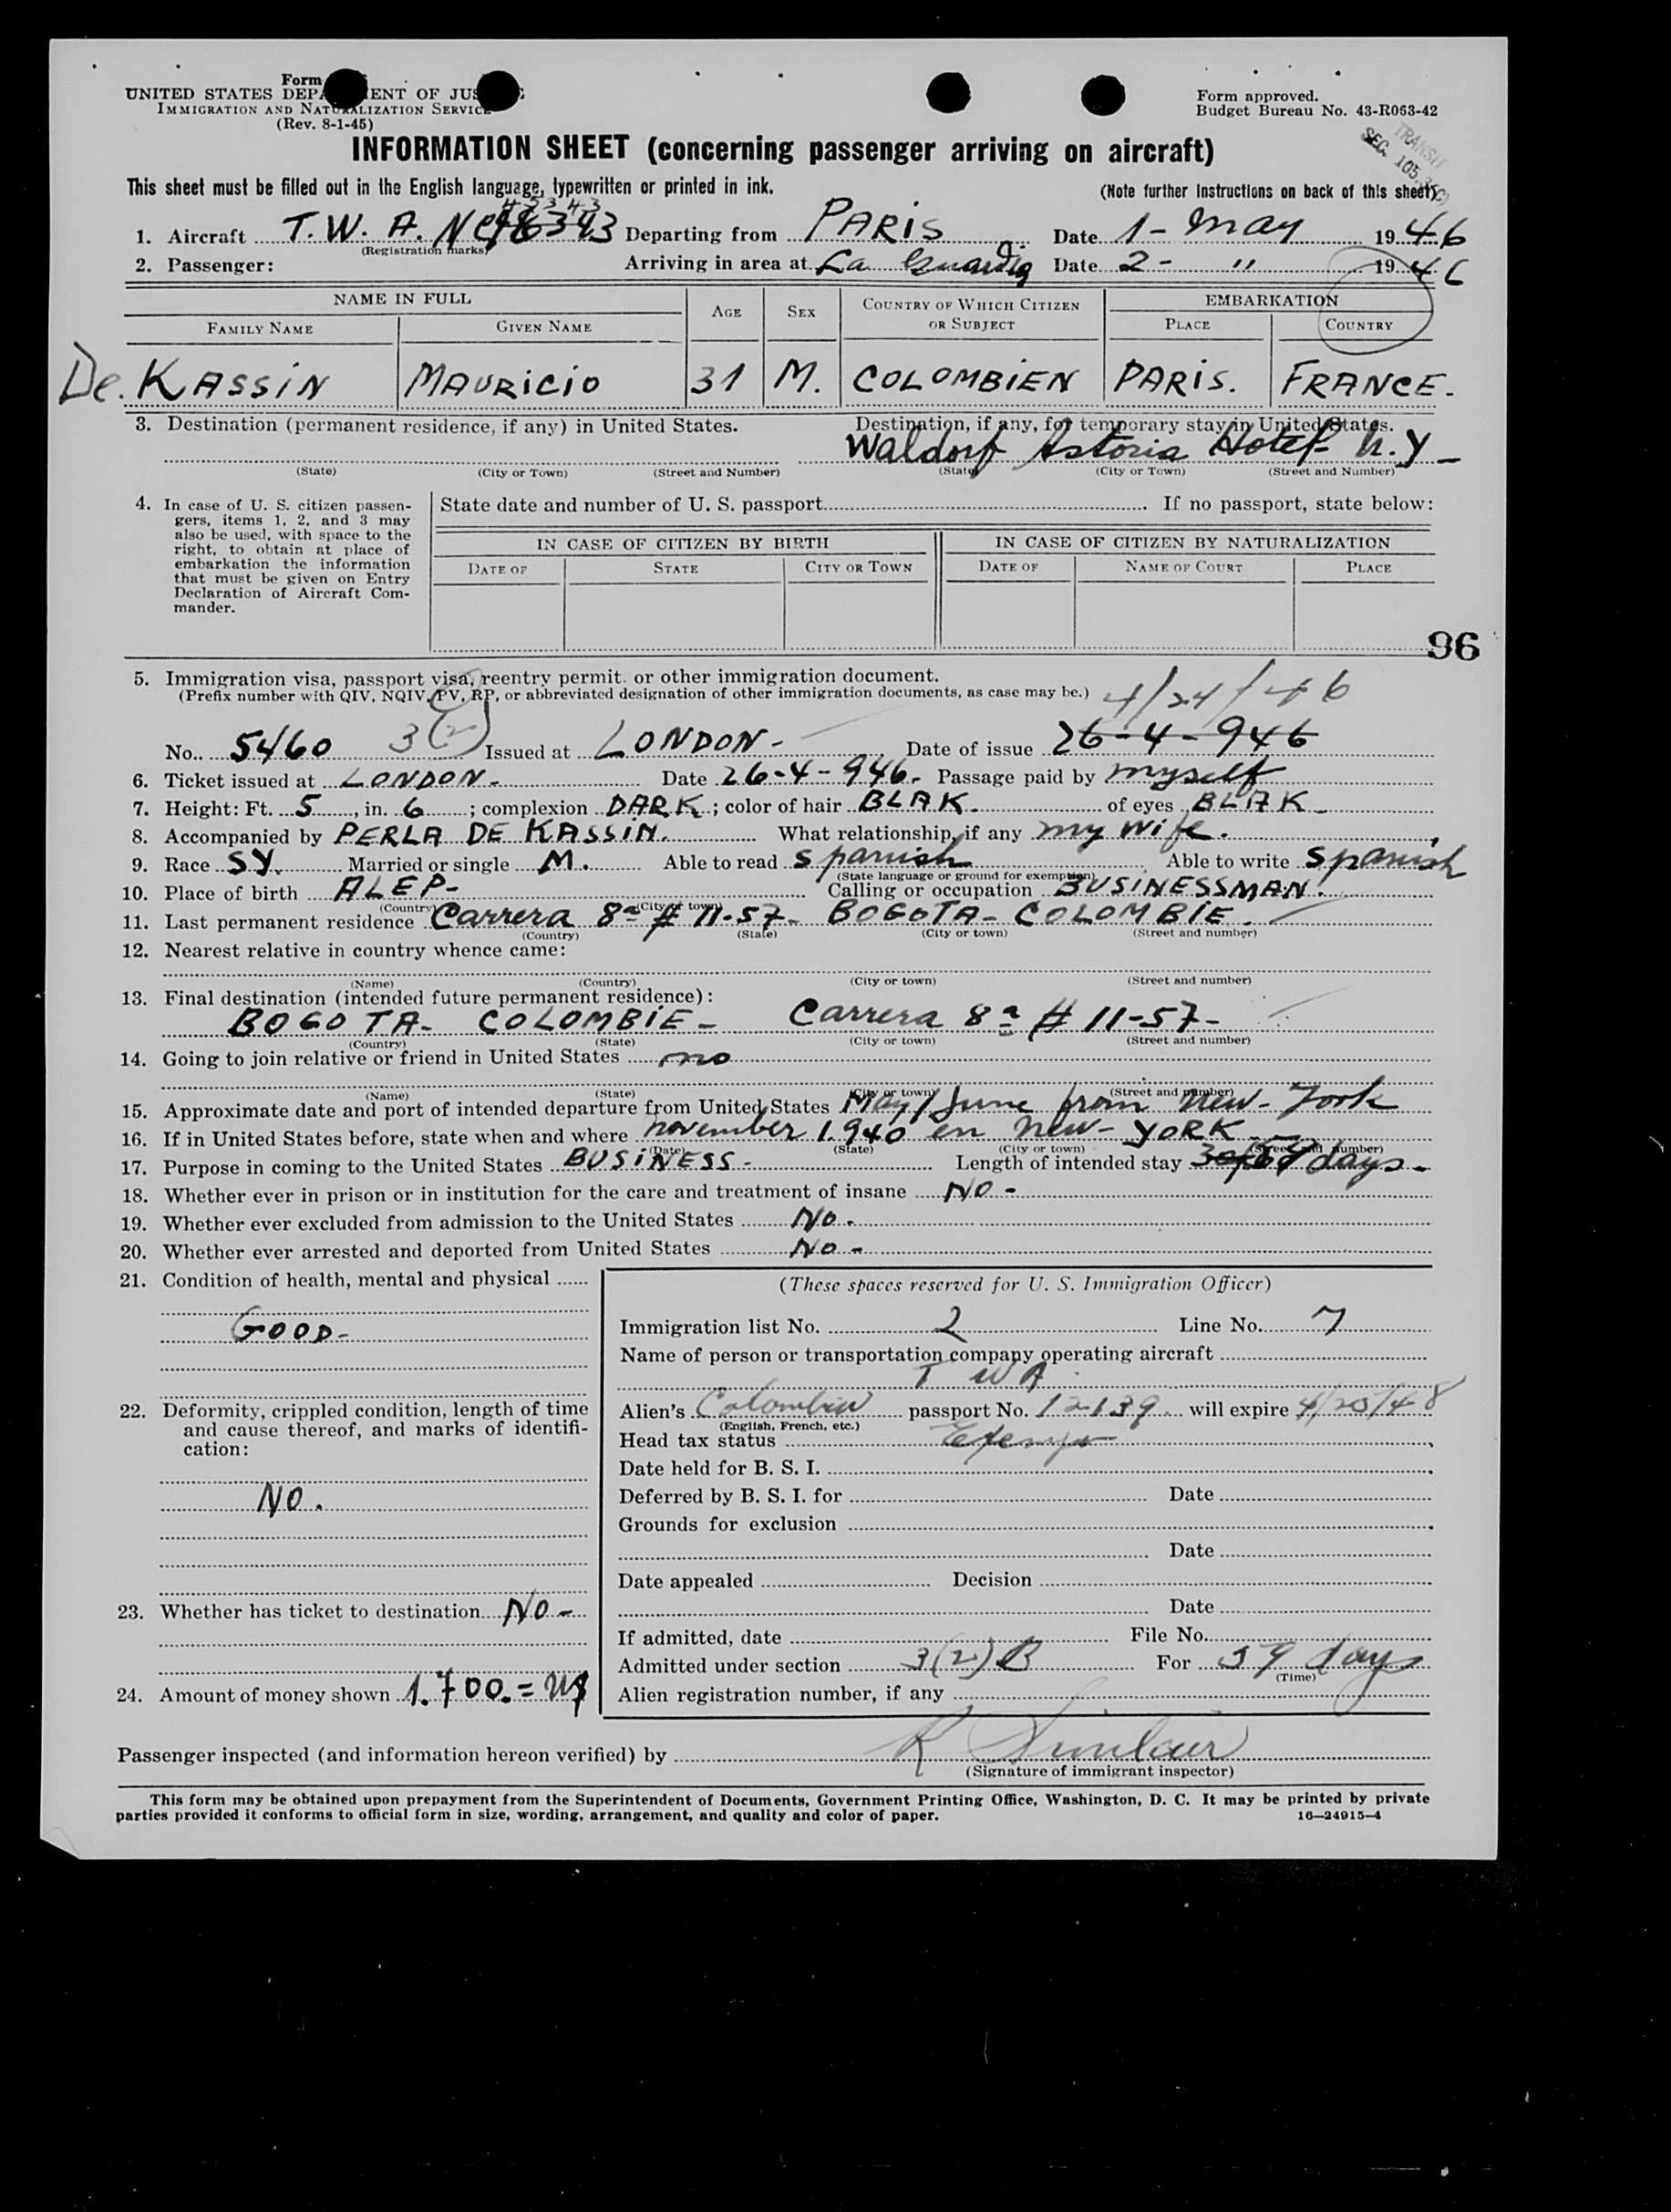 Form
UNITED STATES DEP ENT OF JUS
IMMIGRATION AND NATURALIZATION SERVICE
(Rev. 8-1-45)
Form approved.
Budget Bureau No. 43-R063-42
TRANSIT
SEC. 105.3(C)
INFORMATION SHEET (concerning passenger arriving on aircraft)
This sheet must be filled out in the English language, typewritten or printed in ink. (Note further instructions on back of this sheet)
1. Aircraft T. W. A. NC Departing from PARIS Date 1- May 1946
(Registration marks)
2. Passenger: Arriving in area at La Guardia Date 2- " 1946
NAME IN FULL AGE SEX COUNTRY OF WHICH CITIZEN OR SUBJECT EMBARKATION
FAMILY NAME GIVEN NAME PLACE COUNTRY
De. KASSIN MAURICIO 31 M. COLOMBIEN PARIS. FRANCE.
3. Destination (permanent residence, if any) in United States. Destination, if any, for temporary stay in United States.
Waldorf Astoria Hotel- N.Y-
(State) (City or Town) (Street and Number) (State) (City or Town) (Street and Number)
4. In case of U. S. citizen passen-
gers, items 1, 2, and 3 may
also be used, with space to the
right, to obtain at place of
embarkation the information
that must be given on Entry
Declaration of Aircraft Com-
mander.
State date and number of U. S. passport If no passport, state below:
IN CASE OF CITIZEN BY BIRTH IN CASE OF CITIZEN BY NATURALIZATION
DATE OF STATE CITY OR TOWN DATE OF NAME OF COURT PLACE
96
5. Immigration visa, passport visa, reentry permit. or other immigration document.
(Prefix number with QIV, NQIV, PV, RP, or abbreviated designation of other immigration documents, as case may be.) 4/24/46
No. 5460 3(2) Issued at LONDON- Date of issue 26-4-946
6. Ticket issued at LONDON- Date 26-4-946.- Passage paid by myself
7. Height: Ft. 5, in. 6; complexion DARK; color of hair BLAK. of eyes BLAK-
8. Accompanied by PERLA DE KASSIN. What relationship, if any my wife.
9. Race SY. Married or single M. Able to read Spanish Able to write Spanish
(State language or ground for exemption)
10. Place of birth ALEP- Calling or occupation BUSINESSMAN.
(Country) (City or town)
11. Last permanent residence Carrera 8ª # 11-57- BOGOTA- COLOMBIE.
(Country) (State) (City or town) (Street and number)
12. Nearest relative in country whence came:
(Name) (Country) (City or town) (Street and number)
13. Final destination (intended future permanent residence):
BOGOTA- COLOMBIE- Carrera 8ª # 11-57-
(Country) (State) (City or town) (Street and number)
14. Going to join relative or friend in United States no
(Name) (State) (City or town) (Street and number)
15. Approximate date and port of intended departure from United States May/June from New-York
16. If in United States before, state when and where november 1.940 en New-YORK-
(Date) (State) (City or town) (Street and number)
17. Purpose in coming to the United States BUSINESS- Length of intended stay days-
18. Whether ever in prison or in institution for the care and treatment of insane NO-
19. Whether ever excluded from admission to the United States No.
20. Whether ever arrested and deported from United States No-
21. Condition of health, mental and physical
GOOD-
22. Deformity, crippled condition, length of time
and cause thereof, and marks of identifi-
cation:
NO.
23. Whether has ticket to destination NO-
24. Amount of money shown 1.700.= U$
(These spaces reserved for U. S. Immigration Officer)
Immigration list No. 2 Line No. 7
Name of person or transportation company operating aircraft
T W A
Alien's Colombia passport No. 12139 will expire 4/25/48
(English, French, etc.)
Head tax status Exempt
Date held for B. S. I.
Deferred by B. S. I. for Date
Grounds for exclusion
Date
Date appealed Decision
Date
If admitted, date File No.
Admitted under section 3(2) B For 59 days
(Time)
Alien registration number, if any
Passenger inspected (and information hereon verified) by R Sinclair
(Signature of immigrant inspector)
This form may be obtained upon prepayment from the Superintendent of Documents, Government Printing Office, Washington, D. C. It may be printed by private
parties provided it conforms to official form in size, wording, arrangement, and quality and color of paper. 16—24915-4